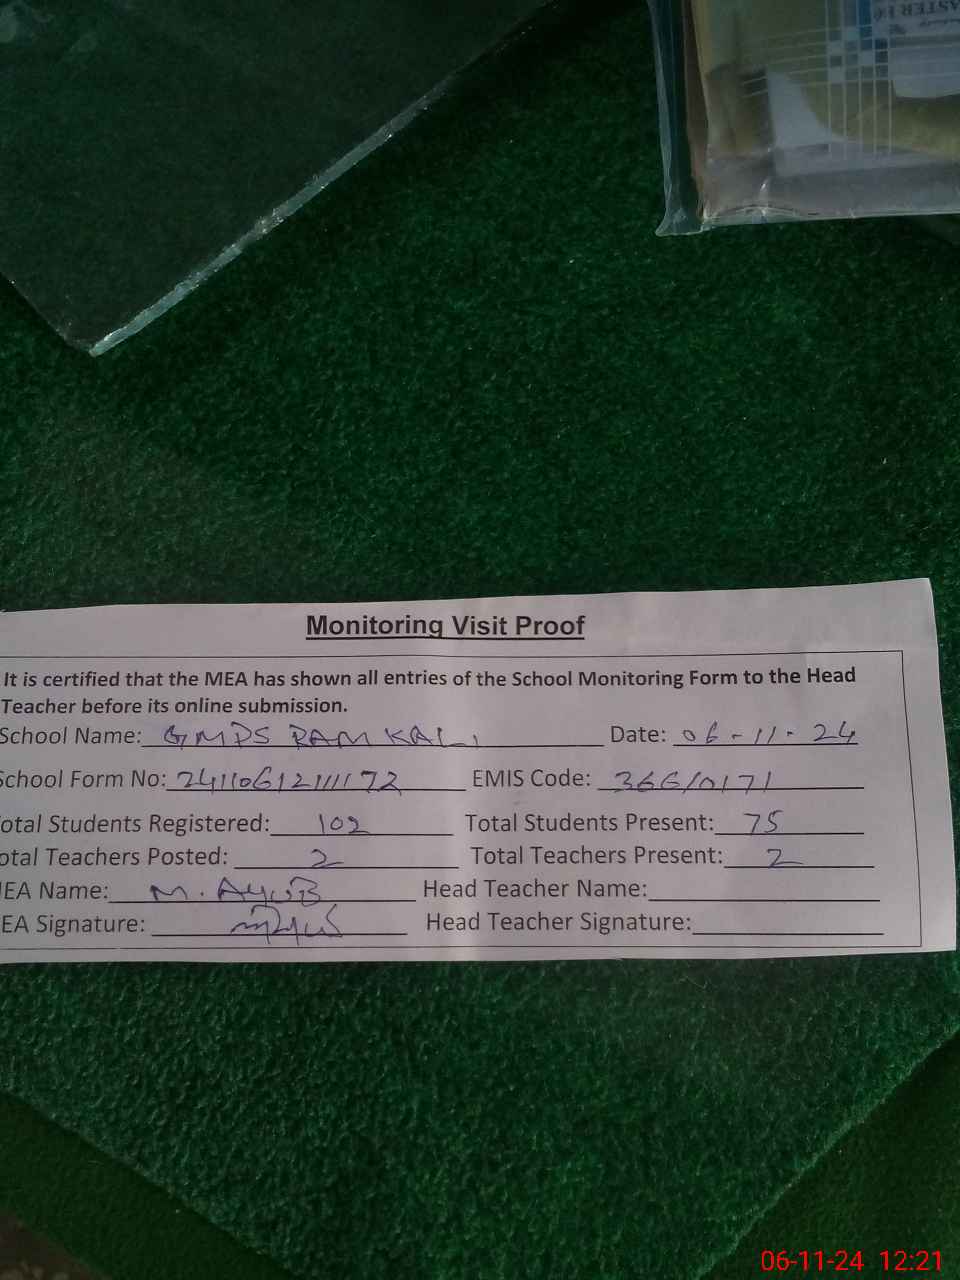 ASTER
Monitoring Visit Proof
It is certified that the MEA has shown all entries of the School Monitoring Form to the Head
Teacher before its online submission.
School Name: GMPS RAM KALI Date: 06-11-24
School Form No: 2411061211172 EMIS Code: 36610171
otal Students Registered: 102 Total Students Present: 75
otal Teachers Posted: 2 Total Teachers Present: 2
EA Name: M. AYUB Head Teacher Name:
EA Signature: Head Teacher Signature:
06-11-24 12:21